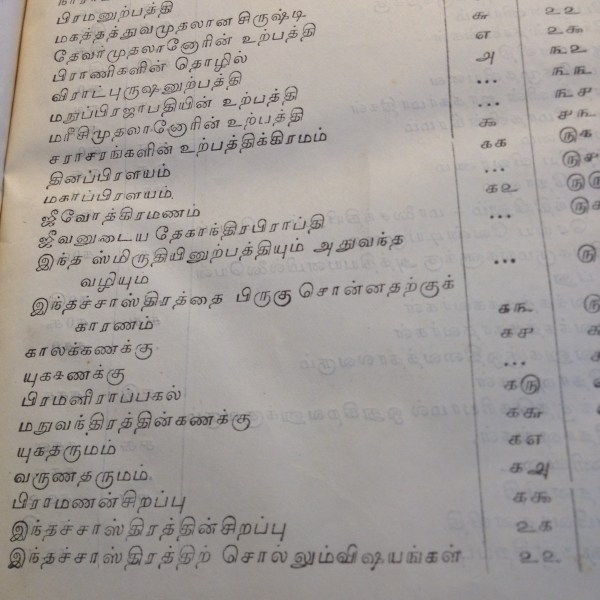 பிரமனுற்பத்தி ௬ ௨௨
மகத்தத்துவமுதலான சிருஷ்டி
தேவர்முதலானோரின் உற்பத்தி ௭ ௨௯
பிராணிகளின் தொழில் ௮ ௩௨
விராட்புருஷனுற்பத்தி ... ௩௩
மறுப்பிரஜாபதியின் உற்பத்தி ... ௩௪
மரீசிமுதலானோரின் உற்பத்தி ௯ ௪௩
சரர்சரங்களின் உற்பத்திக்கிரமம் ௧௧ ௫௧
தினப்பிரளயம் ... ௫௪
மகாப்பிரளயம். ௧௨
ஜீவோத்கிரமணம் ...
ஜீவனுடைய தேகாந்திரபிராப்தி
இந்த ஸ்மிருதியினுற்பத்தியும் அதுவந்த
வழியும் ...
இந்தச்சாஸ்திரத்தை பிருகு சொன்னதற்குக்
காரணம் ௧௩
காலக்கணக்கு ௧௪
யுகக்ஷணக்கு ...
பிரமனிராப்பகல் ௧௫
மறுவந்திரத்தின்கணக்கு ௧௬
யுகதருமம் ௧௭
வருணதருமம். ௧௮
பிராமணன்சிறப்பு ௧௯
இந்தச்சாஸ்திரத்தின்சிறப்பு ௨௧
இந்தச்சாஸ்திரத்திற் சொல்லும்விஷயங்கள் ௨௨